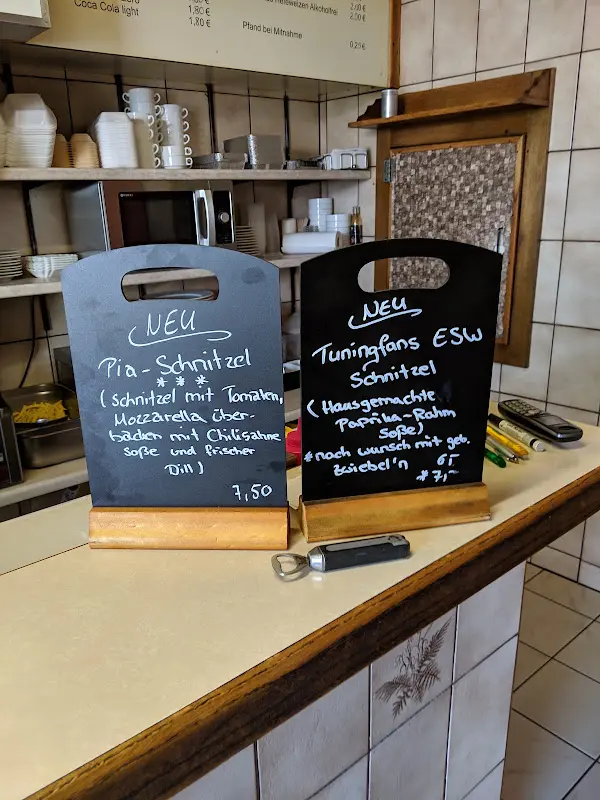 Coca Cola light
1,80 €
1,80 €
Hefeweizen Alkoholfrei
2,00 €
2,50 €
Pfand bei Mitnahme
0,25 €
NEU
Pia - Schnitzel
* * *
( Schnitzel mit Tomaten,
Mozzarella über-
backen mit Chilisahne
soße und frischer
Dill )
7,50
NEU
Tuningfans ESW
Schnitzel
( Hausgemachte
Paprika-Rahm
Soße)
* nach wunsch mit geb.
Zwiebel'n
*7,-